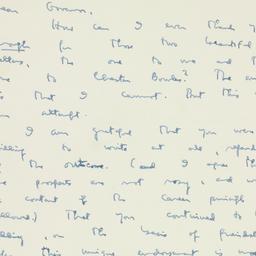 Dear Governor,
How can I ever thank
enough for those two beautiful
letters, the one to me and the
one to Chester Bowles? The
is that I cannot. But this is
an attempt.
I am grateful that you were
willing to write at all, regardless
of the outcome. (And I agree that
the prospects are not rosy, and
content if the career principle
followed.) That you continued to be
willing, on the basis of
this unique endorsement is